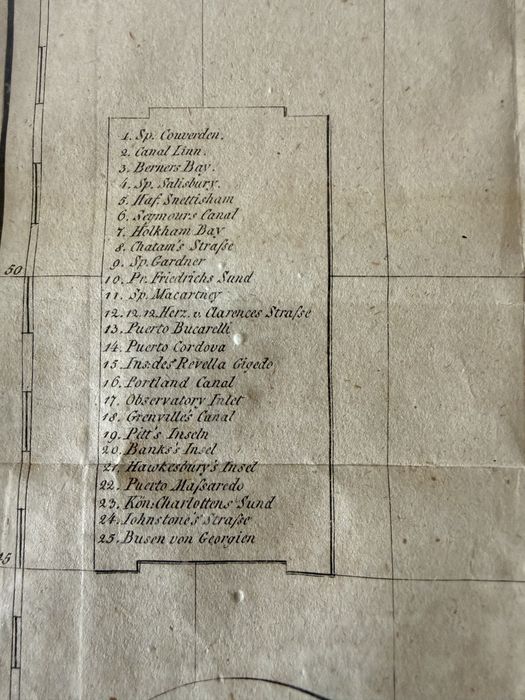 1. Sp. Couverden.
2. Canal Linn.
3. Berners Bay.
4. Sp. Salisbury.
5. Haf. Snettisham
6. Seymours Canal
7. Holkham Bay
8. Chatam's Straſse
9. Sp. Gardner
50
10. Pr. Friedrichs Sund
11. Sp. Macartney
12. 12. 12. Herz. v. Clarences Straſse
13. Puerto Bucarelli
14. Puerto Cordova
15. Ins. des Revella Gigedo
16. Portland Canal
17. Observatory Inlet
18. Grenville's Canal
19. Pitt's Inseln
20. Banks's Insel
21. Hawkesbury's Insel
22. Puerto Maſsaredo
23. Kön. Charlottens Sund
24. Iohnstone's Straſse
25. Busen von Georgien
45